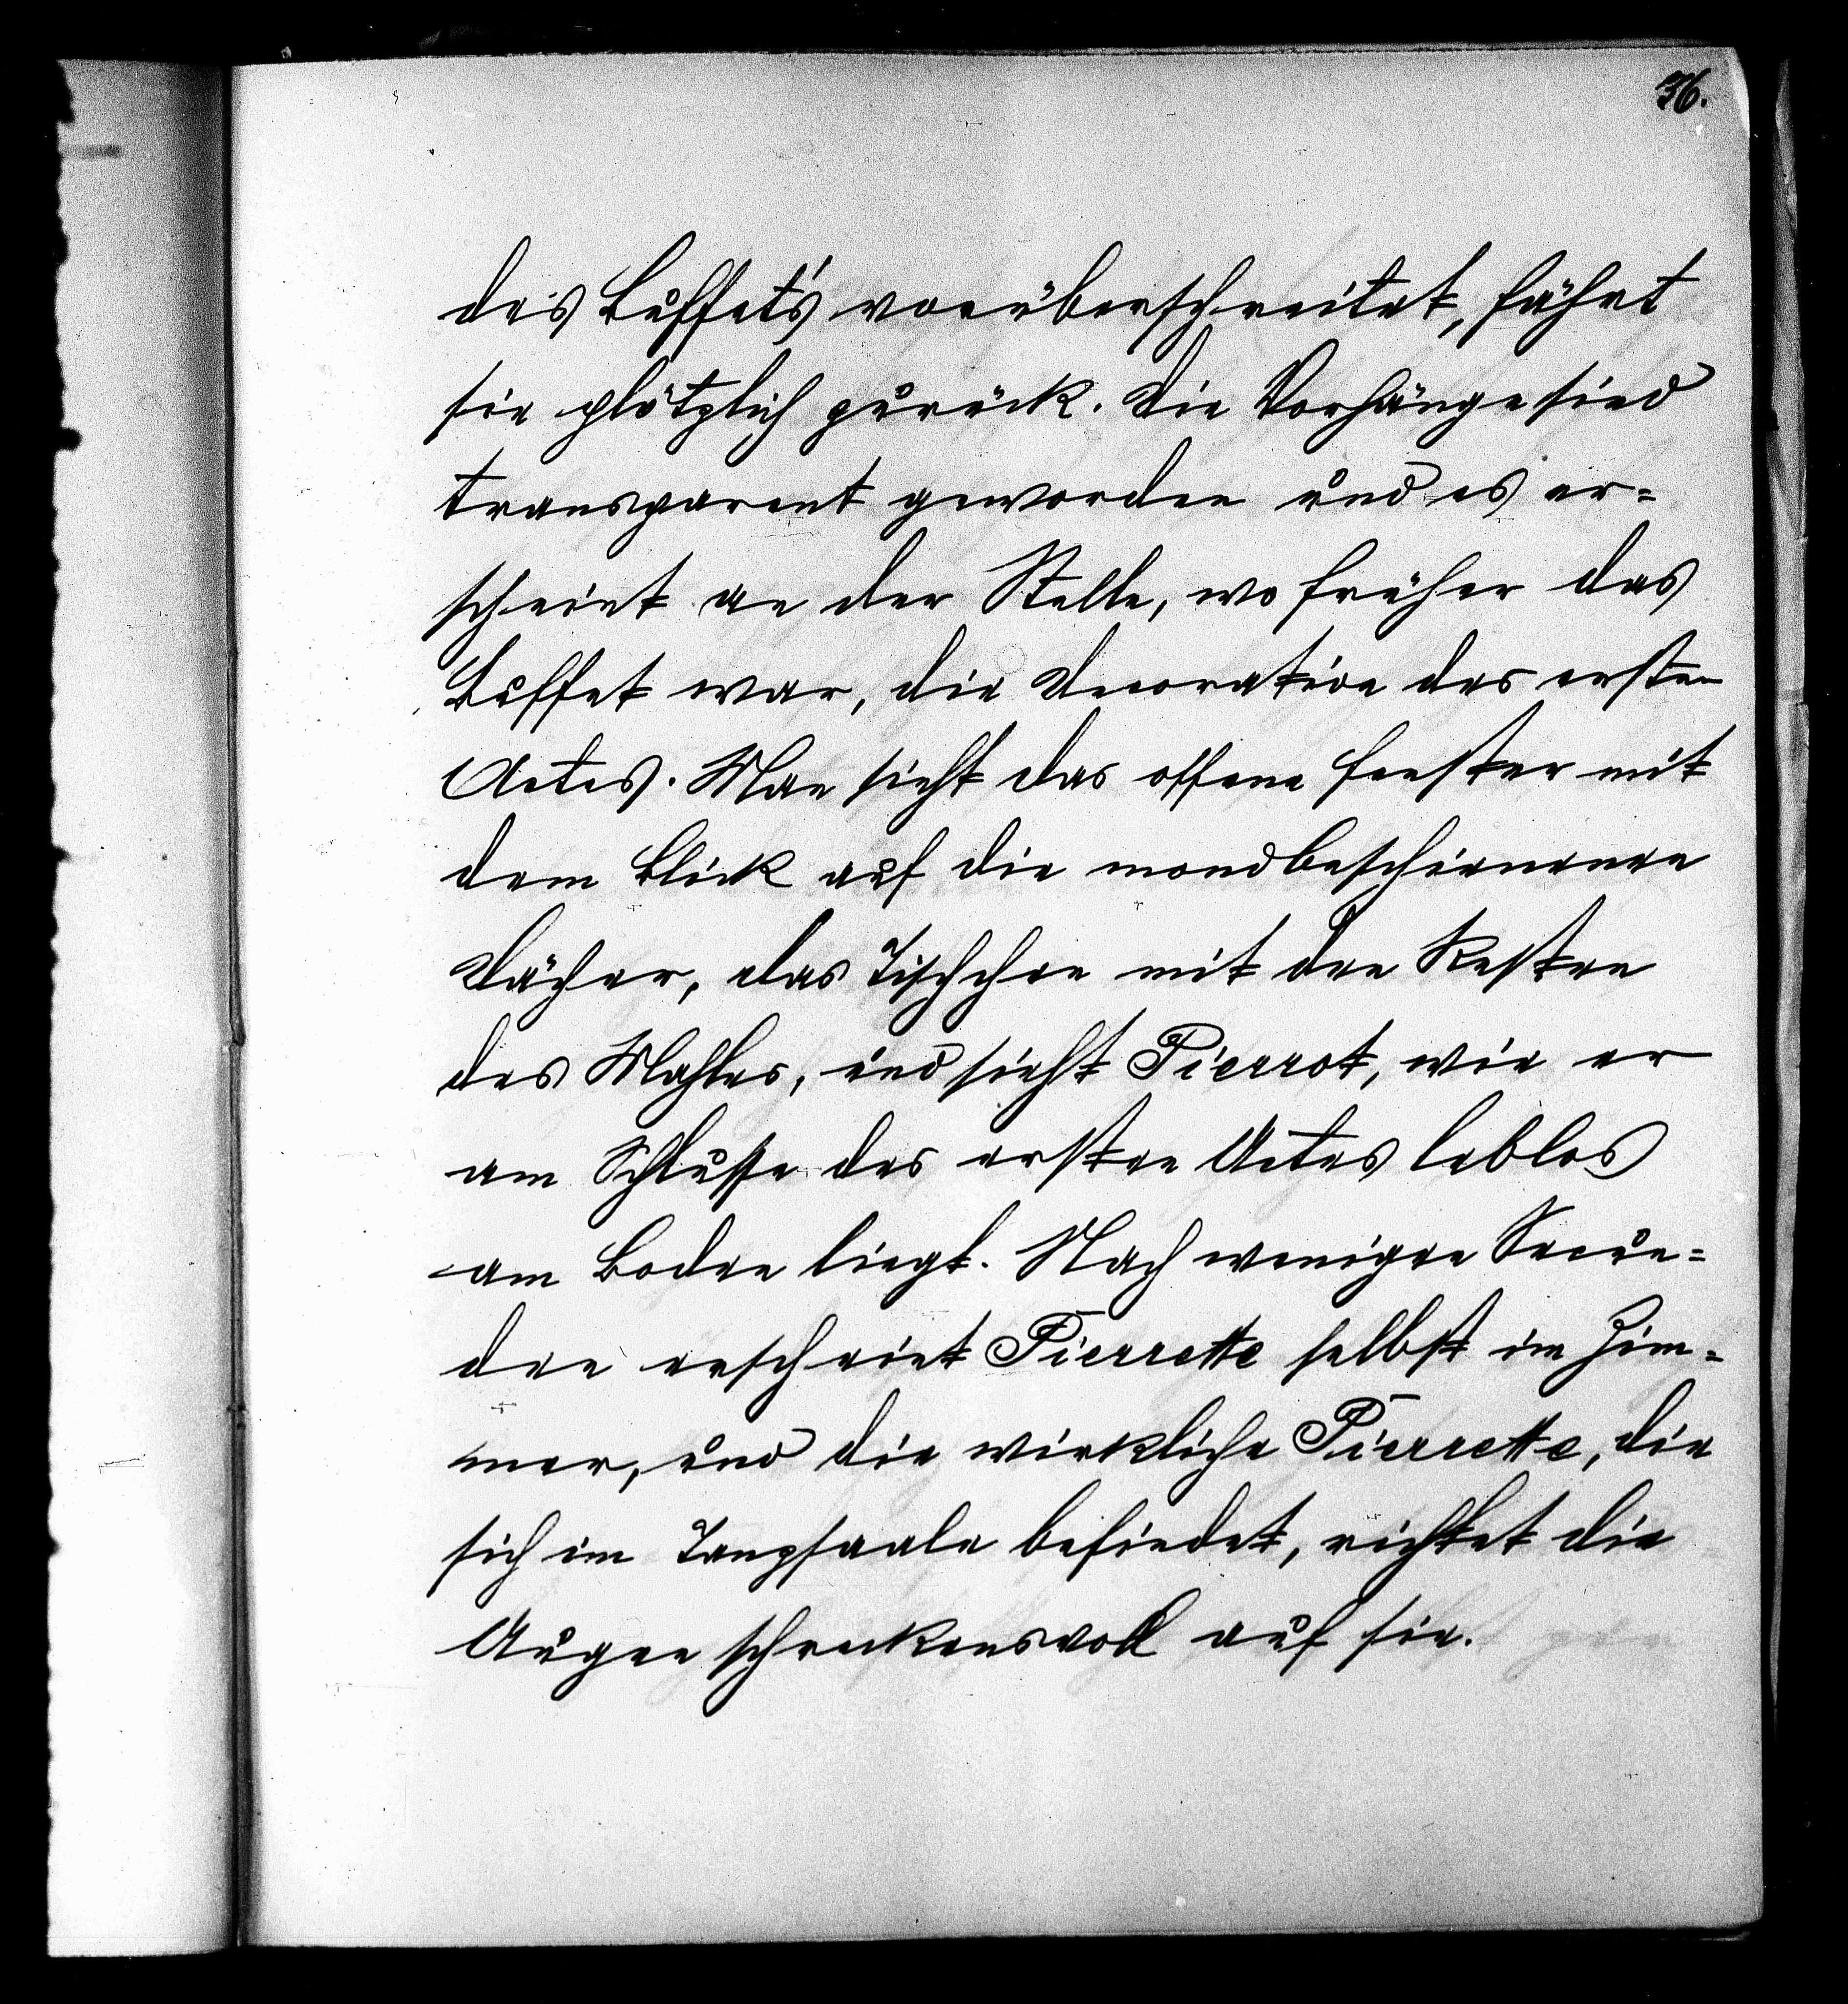 36.
des Buffet's vorüberschreitet, fährt
sie plötzlich zurück. Die Vorhänge sind
transparent geworden und es er=
scheint an der Stelle, wo früher das
Buffet war, die Decoration des ersten
Actes. Man sieht das offene Fenster mit
dem Blick auf die mondbeschienenen
Dächer, das Tischchen mit den Resten
des Mahles, und sieht Pierrot, wie er
am Schlusse des ersten Actes leblos
am Boden liegt. Nach wenigen Secun=
den erscheint Pierrette selbst im Zim=
mer, und die wirkliche Pierrette, die
sich im Tanzsaale befindet, richtet die
Augen schreckensvoll auf sie.